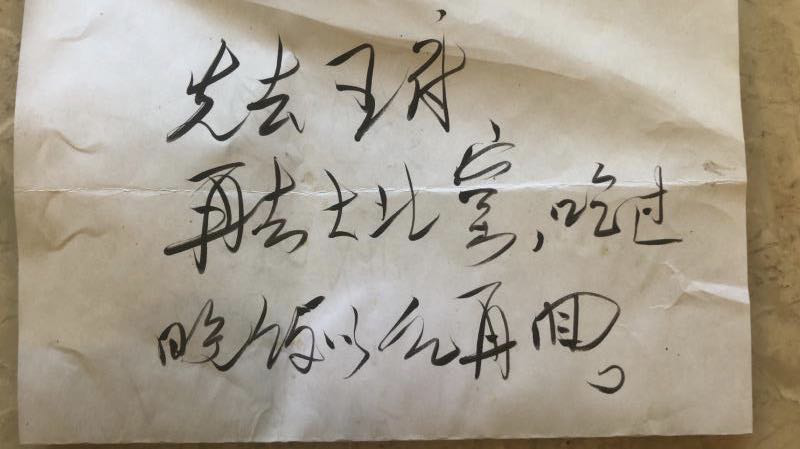 先去王府
再去大北窑，吃过
晚饭以后再回。